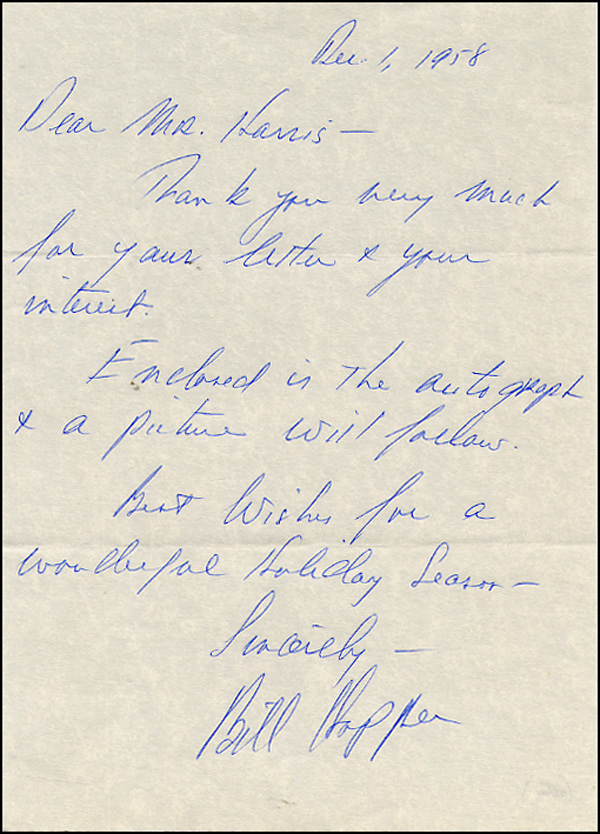 Dec 1, 1958
Dear Mrs. Harris—
Thank you very much
for your letter & your
interest.
Enclosed is the autograph
& a picture will follow.
Best Wishes for a
wonderful Holiday Season—
Sincerely—
Bill Hopper